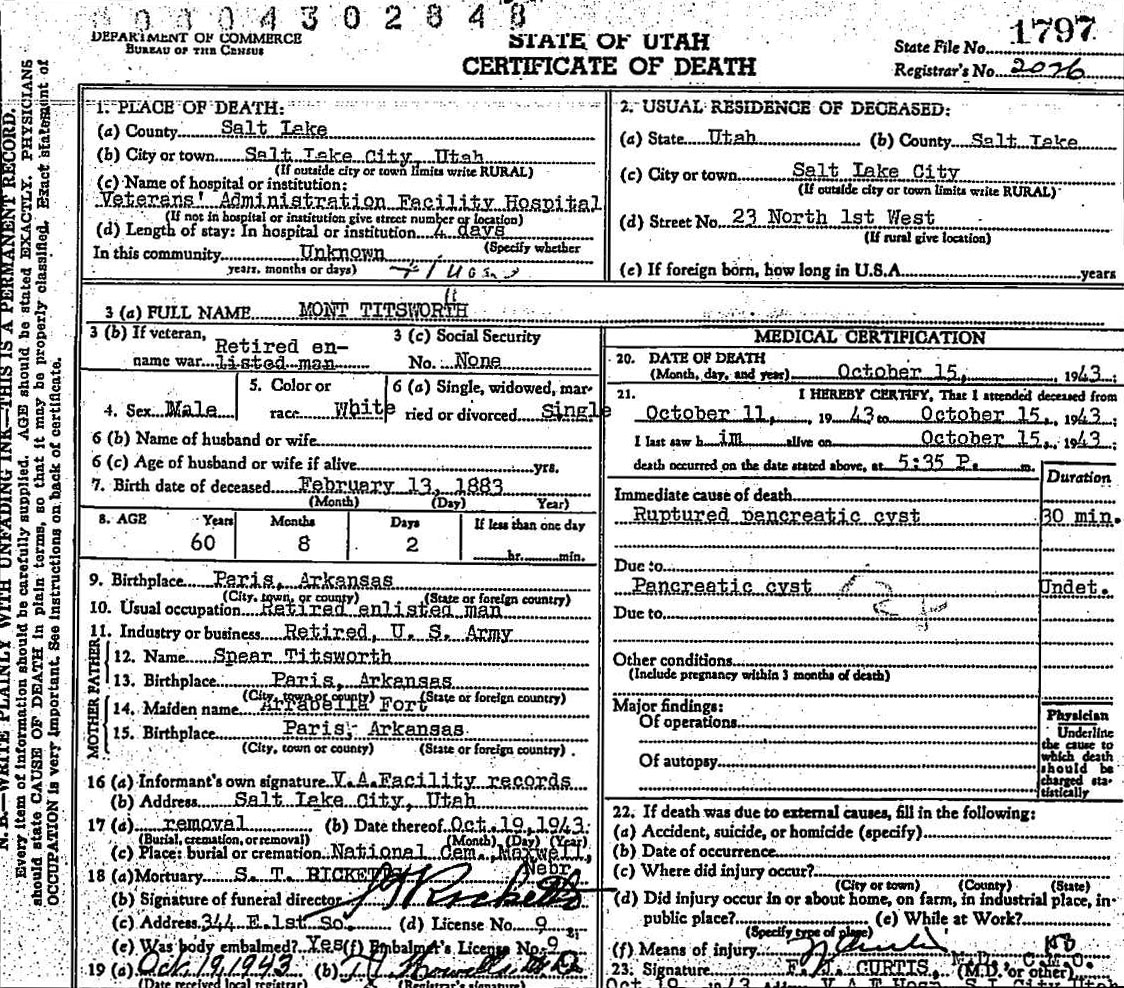 0 0 0 4 3 0 2 8 4 8
DEPARTMENT OF COMMERCE
BUREAU OF THE CENSUS
STATE OF UTAH
CERTIFICATE OF DEATH
State File No. 1797
Registrar's No. 2026
N. B.—WRITE PLAINLY WITH UNFADING INK—THIS IS A PERMANENT RECORD.
Every item of information should be carefully supplied. AGE should be stated EXACTLY. PHYSICIANS
should state CAUSE OF DEATH in plain terms, so that it may be properly classified. Exact statement of
OCCUPATION is very important. See instructions on back of certificate.
1. PLACE OF DEATH:
(a) County Salt Lake
(b) City or town Salt Lake City, Utah
(If outside city or town limits write RURAL)
(c) Name of hospital or institution:
Veterans' Administration Facility Hospital
(If not in hospital or institution give street number or location)
(d) Length of stay: In hospital or institution 4 days
(Specify whether
In this community Unknown
years, months or days)
2. USUAL RESIDENCE OF DECEASED:
(a) State Utah (b) County Salt Lake
(c) City or town Salt Lake City
(If outside city or town limits write RURAL)
(d) Street No. 23 North 1st West
(If rural give location)
(e) If foreign born, how long in U.S.A. years
3 (a) FULL NAME MONT TITSWORTH
3 (b) If veteran, Retired en-
name war listed man
3 (c) Social Security
No. None
4. Sex Male
5. Color or
race White
6 (a) Single, widowed, mar-
ried or divorced Single
6 (b) Name of husband or wife
6 (c) Age of husband or wife if alive yrs.
7. Birth date of deceased February 13, 1883
(Month) (Day) Year)
8. AGE Years Months Days If less than one day
60 8 2 hr. min.
9. Birthplace Paris, Arkansas
(City, town, or county) (State or foreign country)
10. Usual occupation Retired enlisted man
11. Industry or business Retired, U. S. Army
FATHER
12. Name Spear Titsworth
13. Birthplace Paris, Arkansas
(City, town or county) (State or foreign country)
MOTHER
14. Maiden name Arrabella Fort
15. Birthplace Paris, Arkansas
(City, town or county) (State or foreign country)
16 (a) Informant's own signature V.A.Facility records
(b) Address Salt Lake City, Utah
17 (a) removal (b) Date thereof Oct.19,1943
(Burial, cremation, or removal) (Month) (Day) (Year)
(c) Place: burial or cremation National Cem., Maxwell,
Nebr.
18 (a) Mortuary S. T. RICKETTS
(b) Signature of funeral director
(c) Address 344 E.1st So. (d) License No. 9
(e) Was body embalmed? Yes (f) Embalmer's License No. 9
19 (a) Oct. 19, 1943 (b)
(Date received local registrar) (Registrar's signature)
MEDICAL CERTIFICATION
20. DATE OF DEATH
(Month, day, and year) October 15, 1943
21. I HEREBY CERTIFY, That I attended deceased from
October 11, 1943 to October 15, 1943;
I last saw him alive on October 15, 1943;
death occurred on the date stated above, at 5:35 P. m.
Duration
Immediate cause of death
Ruptured pancreatic cyst 30 min.
Due to
Pancreatic cyst Undet.
Due to
Other conditions
(Include pregnancy within 3 months of death)
Major findings:
Of operations
Of autopsy
Physician
Underline
the cause to
which death
should be
charged sta-
tistically
22. If death was due to external causes, fill in the following:
(a) Accident, suicide, or homicide (specify)
(b) Date of occurrence
(c) Where did injury occur?
(City or town) (County) (State)
(d) Did injury occur in or about home, on farm, in industrial place, in-
public place? (e) While at Work?
(Specify type of place)
(f) Means of injury
23. Signature CURTIS, (M.D. or other)